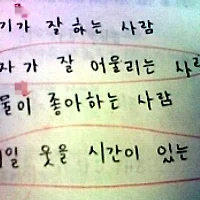 기가 잘 하는 사람
자가 잘 어울리는 사
물이 좋아하는 사람
일 웃을 시간이 있는